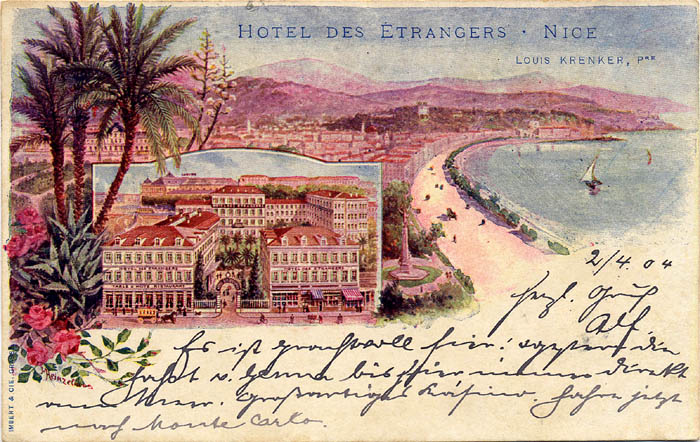 HOTEL DES ÉTRANGERS · NICE
LOUIS KRENKER, PRE
2/4 04
herzl. Gruß
Alf.
Es ist prachtvoll hier: die
Fahrt v. Genua bis hier immer direkt
am Meer. Großartiges Kasino. Fahre jetzt
nach Monte Carlo.
IMBERT & CIE,